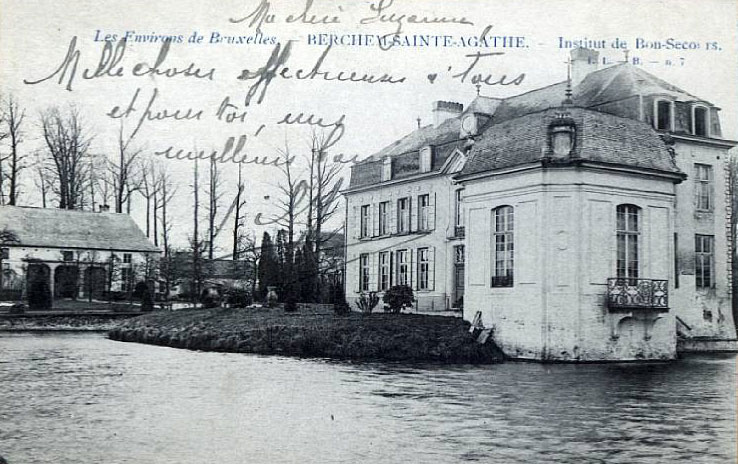 Ma chère Suzanne
Les Environs de Bruxelles. — BERCHEM-SAINTE-AGATHE. — Institut de Bon-Secours.
L. L. — B. — n. 7
Mille choses affectueuses à tous
et pour toi, mes
meilleurs